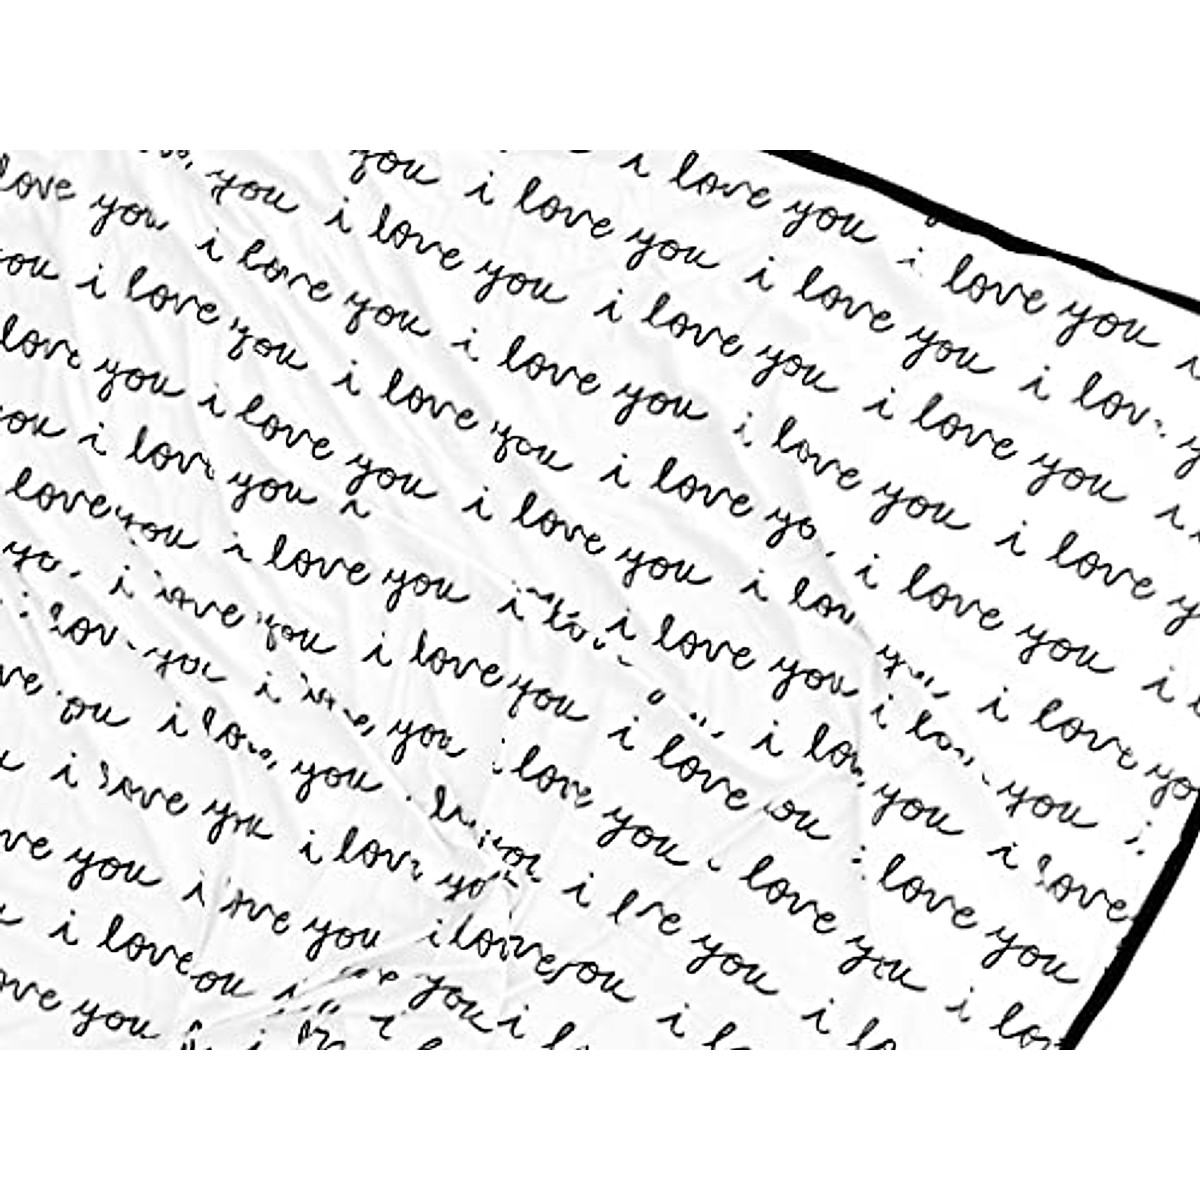 i love you i love you i
you i love you i love you i lov y
you i love you i love you i love you i
love you i love you i love you i love you i love y
ou i love you i love you i love yo i love you i
love you i love you i love you i lov i love yo
ou i lov you i love you i lo you i
love you i love you i lov you i love
yo i love you i love you i love ou love you
i lov you i you i love you love you i lov
ve ou i love you you i you i lo
i love you i lov yo i love you i lo
ve you i ove you ve you i lo
i love ou i
ove you